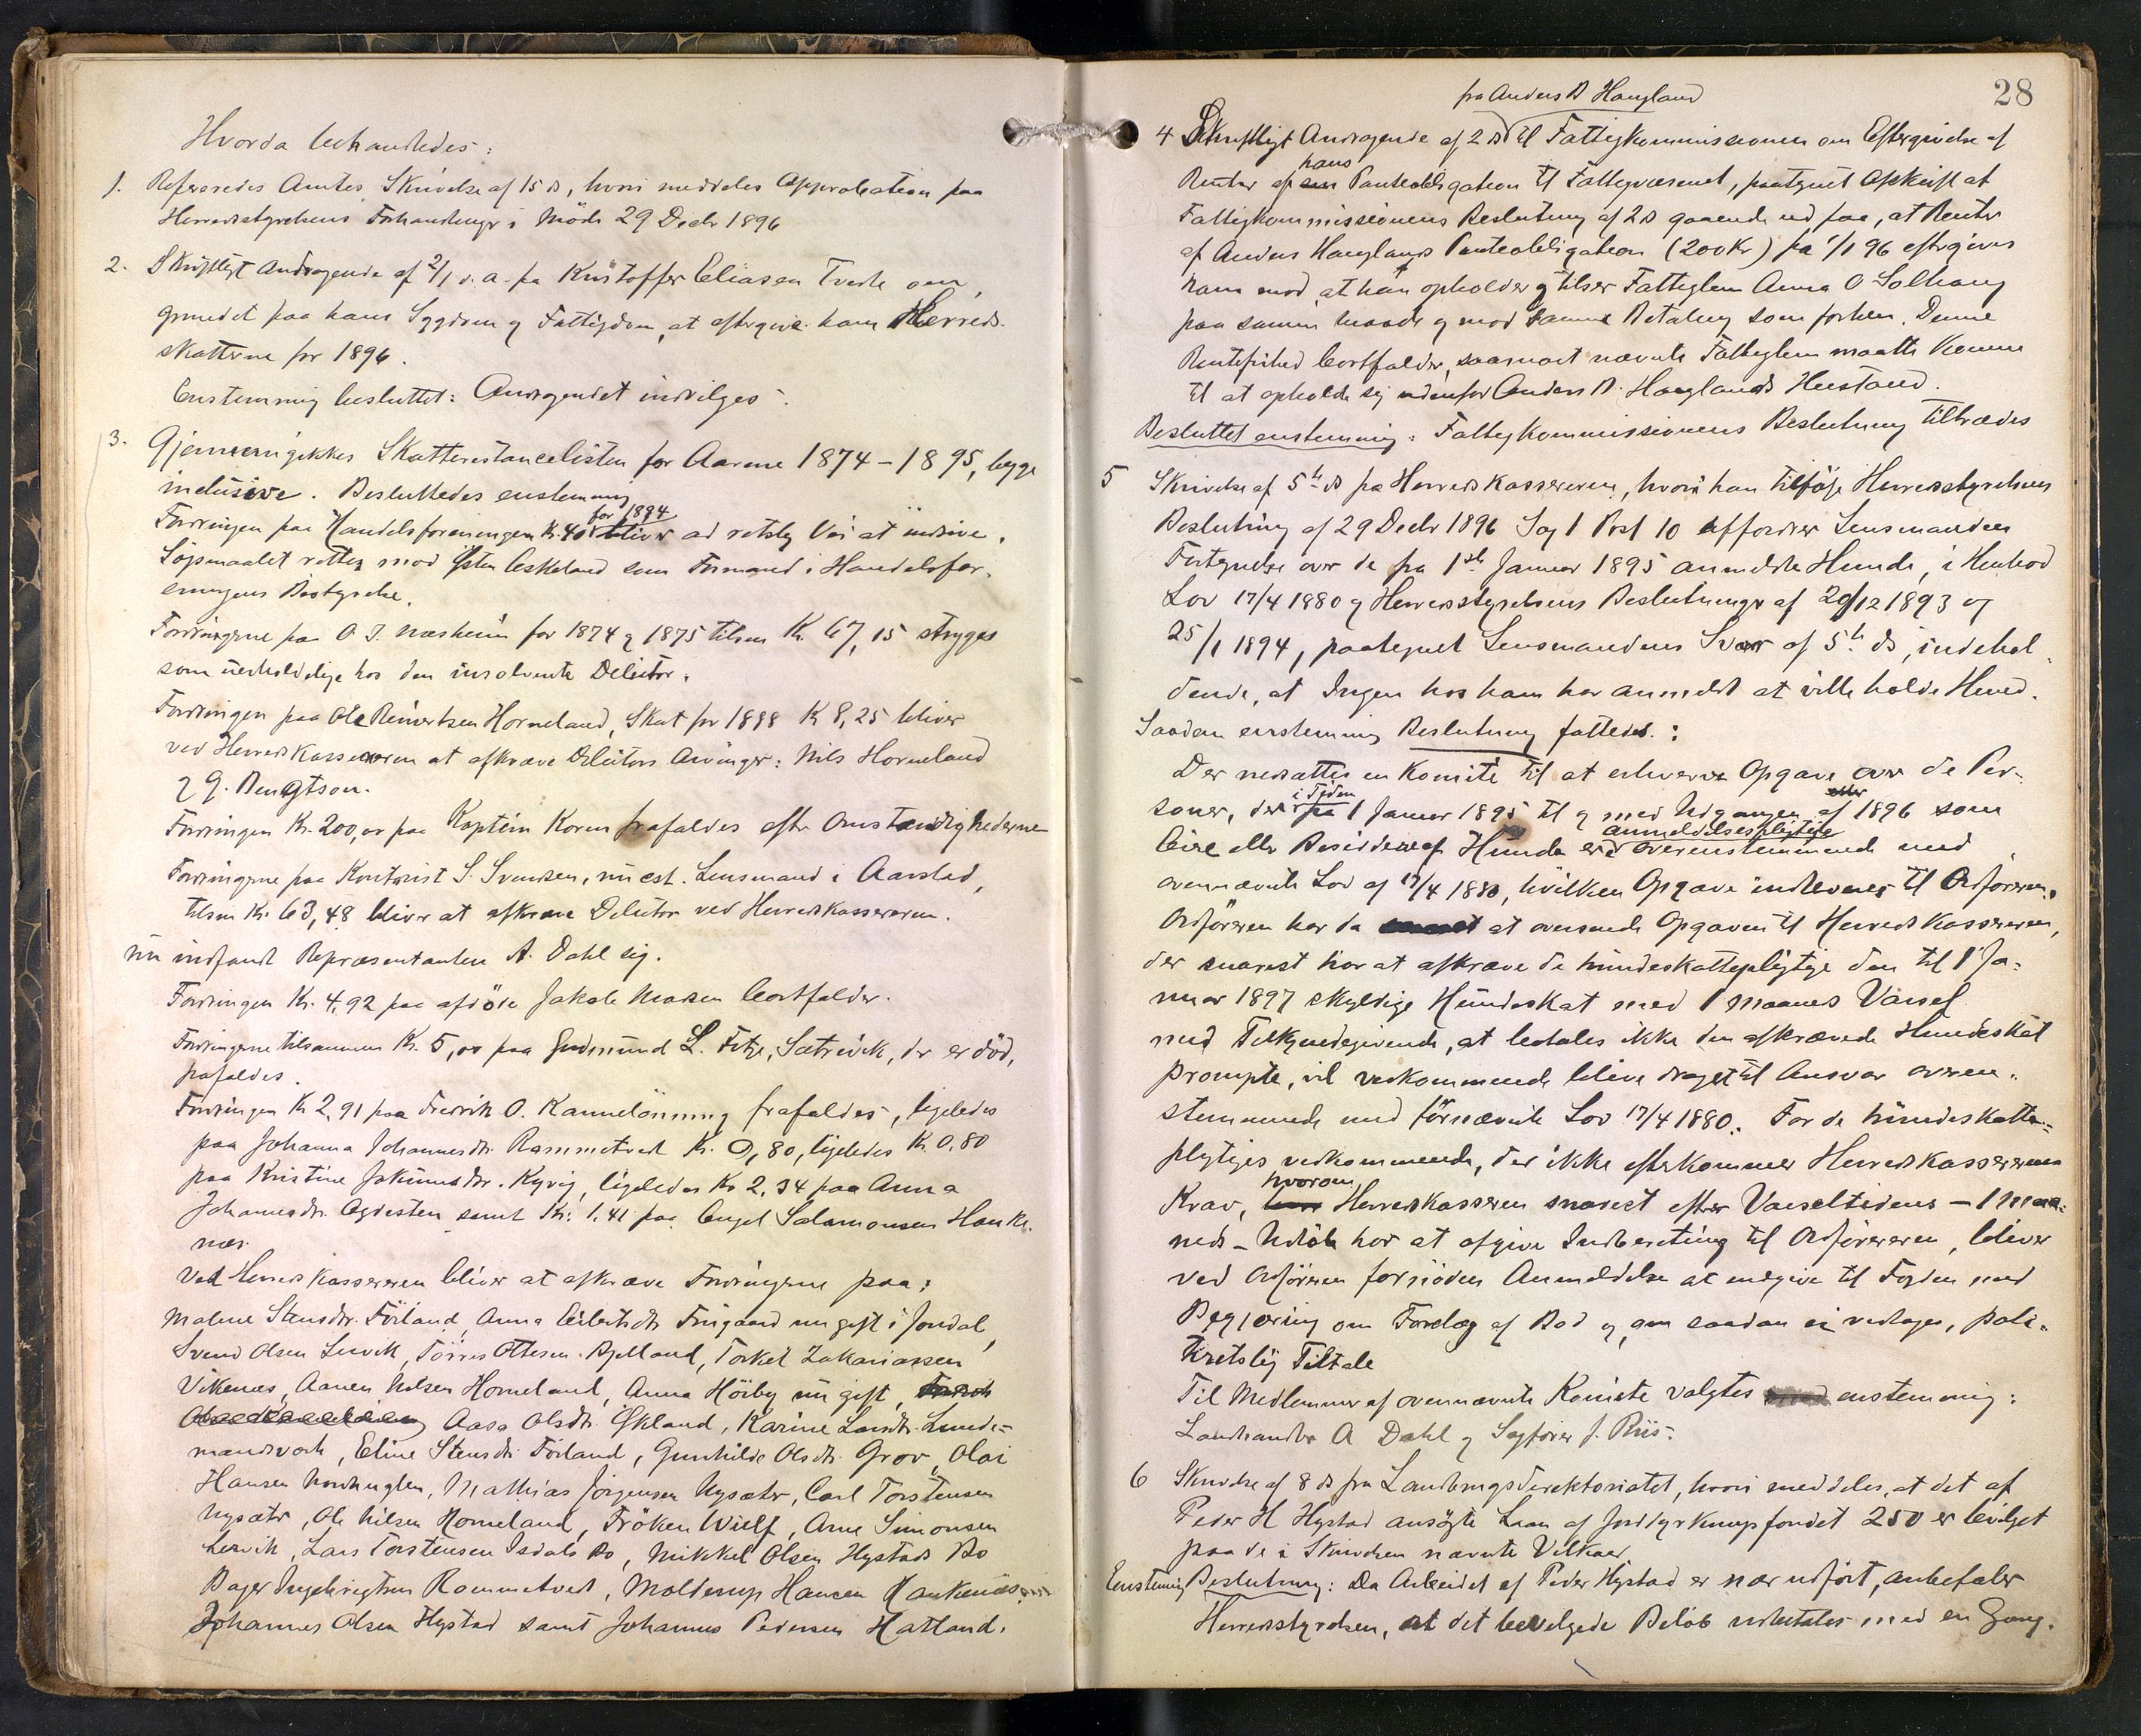 Hvorda behandledes:
1. Refereredes Amtets Skrivelse af 15 ds, hvori meddeles Approbation paa
Herredsstyrelsens Forhandlinger i Möde 29 Decbr 1896
2. Skriftligt Andragende af 2/1 d. a. fra Kristoffer Eliasen Tveite om,
grundet paa hans Sygdom og Fattigdom, at eftergive ham Herreds-
skatterne for 1896.
Enstemmig besluttet: Andragendet indvilges.
3. Gjennemgikkes Skatterestancelisten for Aarene 1874-1895, begge
inclusive. Besluttedes enstemmig
Fordringen paa Handelsforeningen Kr. 40 for 1894 bliver ad retslig Vei at inddrive.
Søgsmaalet rettes mod Østen Eskeland som Formand i Handelsfor-
eningens Bestyrelse.
Fordringerne paa O. J. Næsheim for 1874 og 1875 tilsm Kr. 67,15 stryges
som uerholdelige hos den insolvente Debitor.
Fordringen paa Ole Reinertsen Horneland, Skat for 1888 Kr 8,25 bliver
ved Herredskassereren at afkræve Debitors Arvinger: Nils Horneland
og G. Bengtson.
Fordringen Kr. 200,00 paa Kaptein Koren frafaldes efter Omstændighederne
Fordringerne paa Kontorist S. Svendsen, nu cst. Lensmand i Aarstad,
tilsm Kr. 63,48 bliver at afkræve Debitor ved Herredskassereren.
nu indfandt Repræsentanten A. Dahl sig.
Fordringen Kr. 4,92 paa afdöde Jakob Madsen bortfalder.
Fordringerne tilsammen Kr. 5,00 paa Gudmund L. Fitje, Sætrevik, der er död,
frafaldes.
Fordringen Kr 2,91 paa Fredrik O. Kannelönning frafaldes, ligeledes
paa Johanna Johannesdtr. Rommetvedt Kr. 0,80, ligeledes Kr. 0,80
paa Kristine Jokumsdtr. Kyvig, ligeledes Kr 2,34 paa Anna
Johannesdtr. Agdesten samt Kr. 1,41 paa Engel Salamonsen Hauke-
næs.
Ved Herredskassereren bliver at afkræve Fordringerne paa:
Malene Stensdtr. Förland, Anna Eilertsdtr Fingaard nu gift i Jondal,
Svend Olsen Lervik, Törres Ottesen Bjelland, Torkel Zakariassen
Vikenes, Aanen Nilsen Horneland, Anna Höiby nu gift,
Aasa Olsdtr. Økland, Karine Larsdtr. Lunde-
mandsverk, Eline Stensdtr. Förland, Gunhilde Olsdtr. Grov, Olai
Hansen Nordhuglen, Mathias Jörgensen Nysæter, Carl Torstensen
Nysæter, Ole Nilsen Horneland, Fröken Wulf, Arne Simonsen
Lervik, Lars Torstensen Isdals Bo, Mikkel Olsen Hystads Bo
Bager Ingebrigtsen Rommetvedt, Molderup Hansen Haukenæs,
Johannes Olsen Hystad samt Johannes Pedersen Hatland.
28
fra Anders B Haugland
4 Skriftligt Andragende af 2 ds til Fattigkommissionen om Eftergivelse af
Renter af hans Panteobligation til Fattigvæsenet, paategnet Afskrift af
Fattigkommissionens Beslutning af 2 ds gaaende ud paa, at Renter
af Anders Hauglands Panteobligation (200 Kr) fra 1/1 96 eftergives
ham mod, at han opholder og tilser Fattiglem Anna O Solhaug
paa samme Maade og mod samme Betaling som forhen. Denne
Rentefrihed bortfalder, saasnart nævnte Fattiglem maatte komme
til at opholde sig udenfor Anders B. Hauglands Husstand.
Besluttet enstemmig: Fattigkommissionens Beslutning tiltrædes
5 Skrivelse af 5te ds fra Herredskassereren, hvori han tilföje Herredsstyrelsens
Beslutning af 29 Decbr 1896 Sag 1 Post 10 affordrer Lensmanden
Fortegnelse over de fra 1ste Januar 1895 anmeldte Hunde, i Henhold
Lov 17/4 1880 og Herredsstyrelsens Beslutninger af 29/12 1893 og
25/1 1894, paategnet Lensmandens Svar af 5te ds, indehol-
dende, at Ingen hos ham har anmeldt at ville holde Hund.
Saadan enstemmig Beslutning fattedes:
Der nedsattes en Komite til at erhverve Opgave over de Per-
soner, der i Tiden fra 1 Januar 1895 til og med Udgangen af 1896 som
Eire eller Besiddere af Hunde er anmeldelsespligtige overensstemmende med
ovennævnte Lov af 17/4 1880, hvilken Opgave indleveres til Ordföreren.
Ordföreren har da at oversende Opgaven til Herredskassereren,
der snarest har at afkræve de hundeskattepligtige den til 1 Ja-
nuar 1897 skyldige Hundeskat med 1 Maaneds Varsel
med Tilkjendegivende, at betales ikke den afkrævede Hundeskat
prompte, vil vedkommende blive draget til Ansvar overen-
stemmende med førnævnte Lov 17/4 1880. For de hundeskatte-
pligtiges vedkommende, der ikke efterkommer Herredskassererens
Krav, hvorom Herredskasseren snarest efter Varseltidens – 1 Maa-
neds – Udlöb har at afgive Indberetning til Ordföreren, bliver
ved Ordföreren fornöden Anmeldelse at indgive til Fogden med
Begjæring om Forelæg af Bod og, om saadan ei vedtages, poli-
tiretslig Tiltale
Til Medlemmer af ovennævnte Komite valgtes enstemmig:
Landhandler A Dahl og Sagförer J. Riis.
6 Skrivelse af 8 ds fra Landbrugsdirektoriatet, hvori meddeles, at det af
Peder H Hystad ansøgte Laan af Jorddyrkningsfondet 250 er bevilget
paa de i Skrivelsen nævnte Vilkaar
Enstemig Beslutning: Da Arbeidet af Peder Hystad er nær udfört, anbefaler
Herredsstyrelsen, at det bevilgede Beløb udbetales med en Gang.